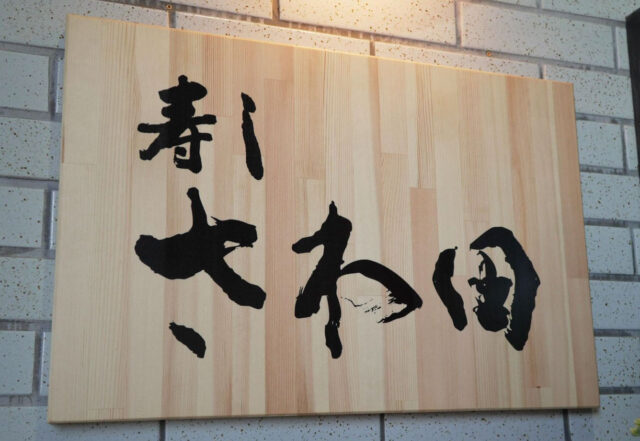 寿し
さわ田